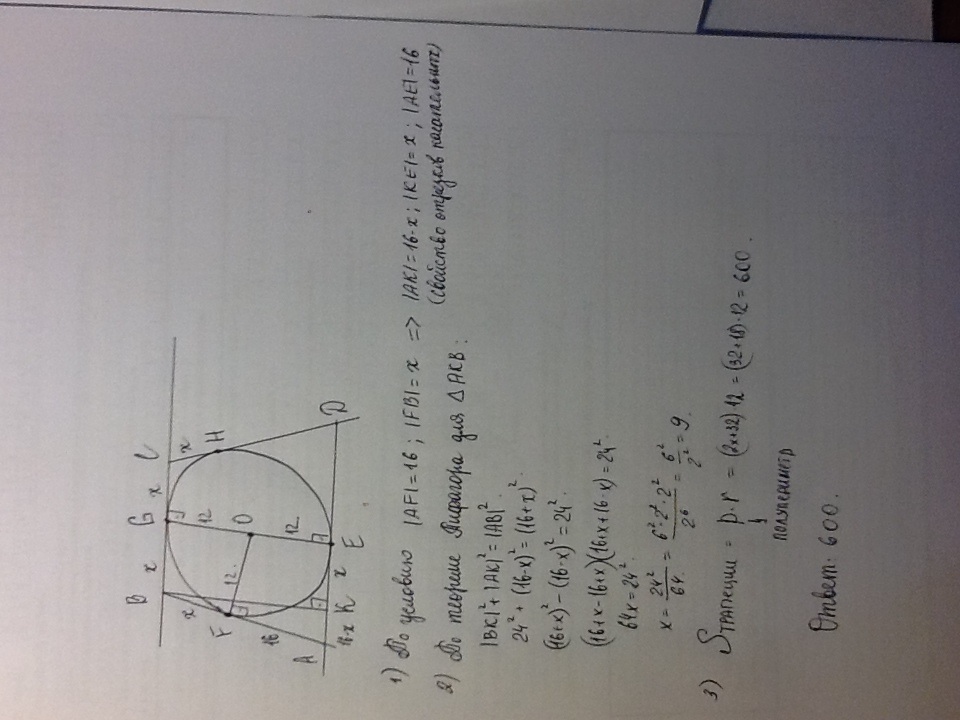 B x G x C
x
F
H
12
12
O
12
16
A 16-x K x E
D
1) По условию |AF|=16; |FB|=x => |AK|=16-x; |KE|=x; |AE|=16
(свойство отрезков касательных)
2) По теореме Пифагора для △AKB:
|BK|²+|AK|²=|AB|²
24²+(16-x)²=(16+x)²
(16+x)²-(16-x)²=24².
(16+x-16+x)(16+x+16-x)=24²
64x=24²
x=24²/64=6²·2²·2²/2⁶=6²/2²=9.
3) Sтрапеции = p·r = (2x+32)·12=(32+18)·12=600.
полупериметр
Ответ: 600.